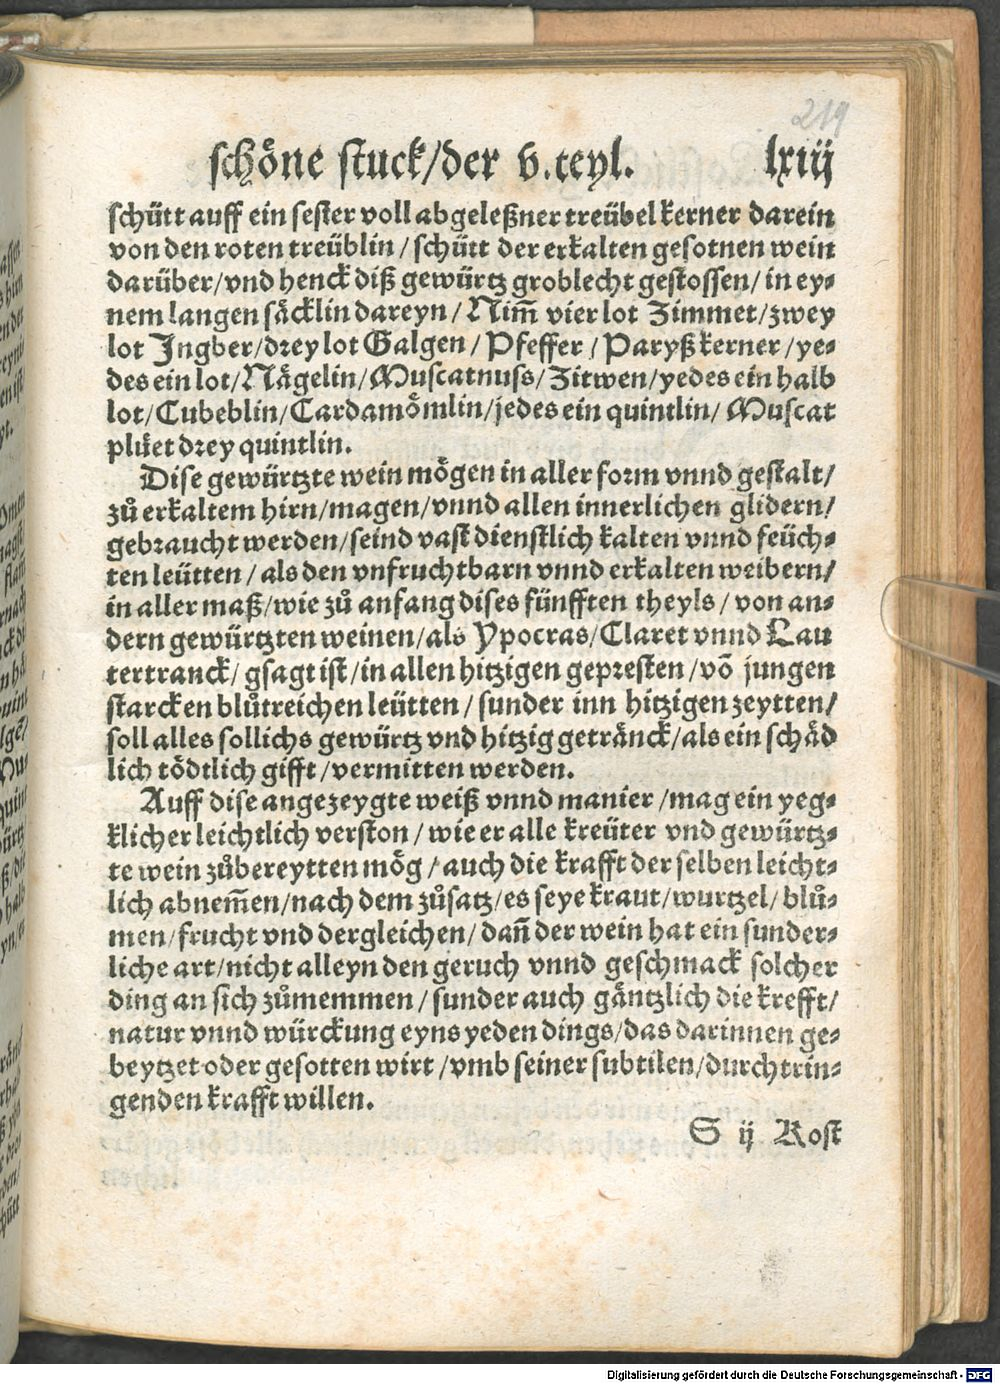 219
schöne stuck/der v.teyl. lxiij
schütt auff ein sester voll abgeleßner treübel kerner darein
von den roten treüblin/schütt der erkalten gesotnen wein
darüber/vnd henck diß gewürtz groblecht gestossen/in ey⸗
nem langen säcklin dareyn/Nim̃ vier lot Zimmet/zwey
lot Ingber/drey lot Galgen/Pfeffer/Paryß kerner/ye⸗
des ein lot/Nägelin/Muscatnuss/Zitwen/yedes ein halb
lot/Cubeblin/Cardamömlin/jedes ein quintlin/Muscat
plüet drey quintlin.
Dise gewürtzte wein mögen in aller form vnnd gestalt/
zů erkaltem hirn/magen/vnnd allen innerlichen glidern/
gebraucht werden/seind vast dienstlich kalten vnnd feüch⸗
ten leütten/als den vnfruchtbarn vnnd erkalten weibern/
in aller maß/wie zů anfang dises fünfften theyls/von an⸗
dern gewürtzten weinen/als Ypocras/Claret vnnd Lau
tertranck/gsagt ist/in allen hitzigen gepresten/võ jungen
starcken blůtreichen leütten/sunder inn hitzigen zeytten/
soll alles sollichs gewürtz vnd hitzig getränck/als ein schäd
lich tödtlich gifft/vermitten werden.
Auff dise angezeygte weiß vnnd manier/mag ein yeg⸗
klicher leichtlich verston/wie er alle kreüter vnd gewürtz⸗
te wein zůbereytten mög/auch die krafft der selben leicht⸗
lich abnem̃en/nach dem zůsatz/es seye kraut/wurtzel/blů⸗
men/frucht vnd dergleichen/dañ der wein hat ein sunder⸗
liche art/nicht alleyn den geruch vnnd geschmack solcher
ding an sich zůmemmen/sunder auch gäntzlich die krefft/
natur vnnd würckung eyns yeden dings/das darinnen ge⸗
beytzet oder gesotten wirt/vmb seiner subtilen/durchtrin⸗
genden krafft willen.
S ij Kost
Digitalisierung gefördert durch die Deutsche Forschungsgemeinschaft - DFG